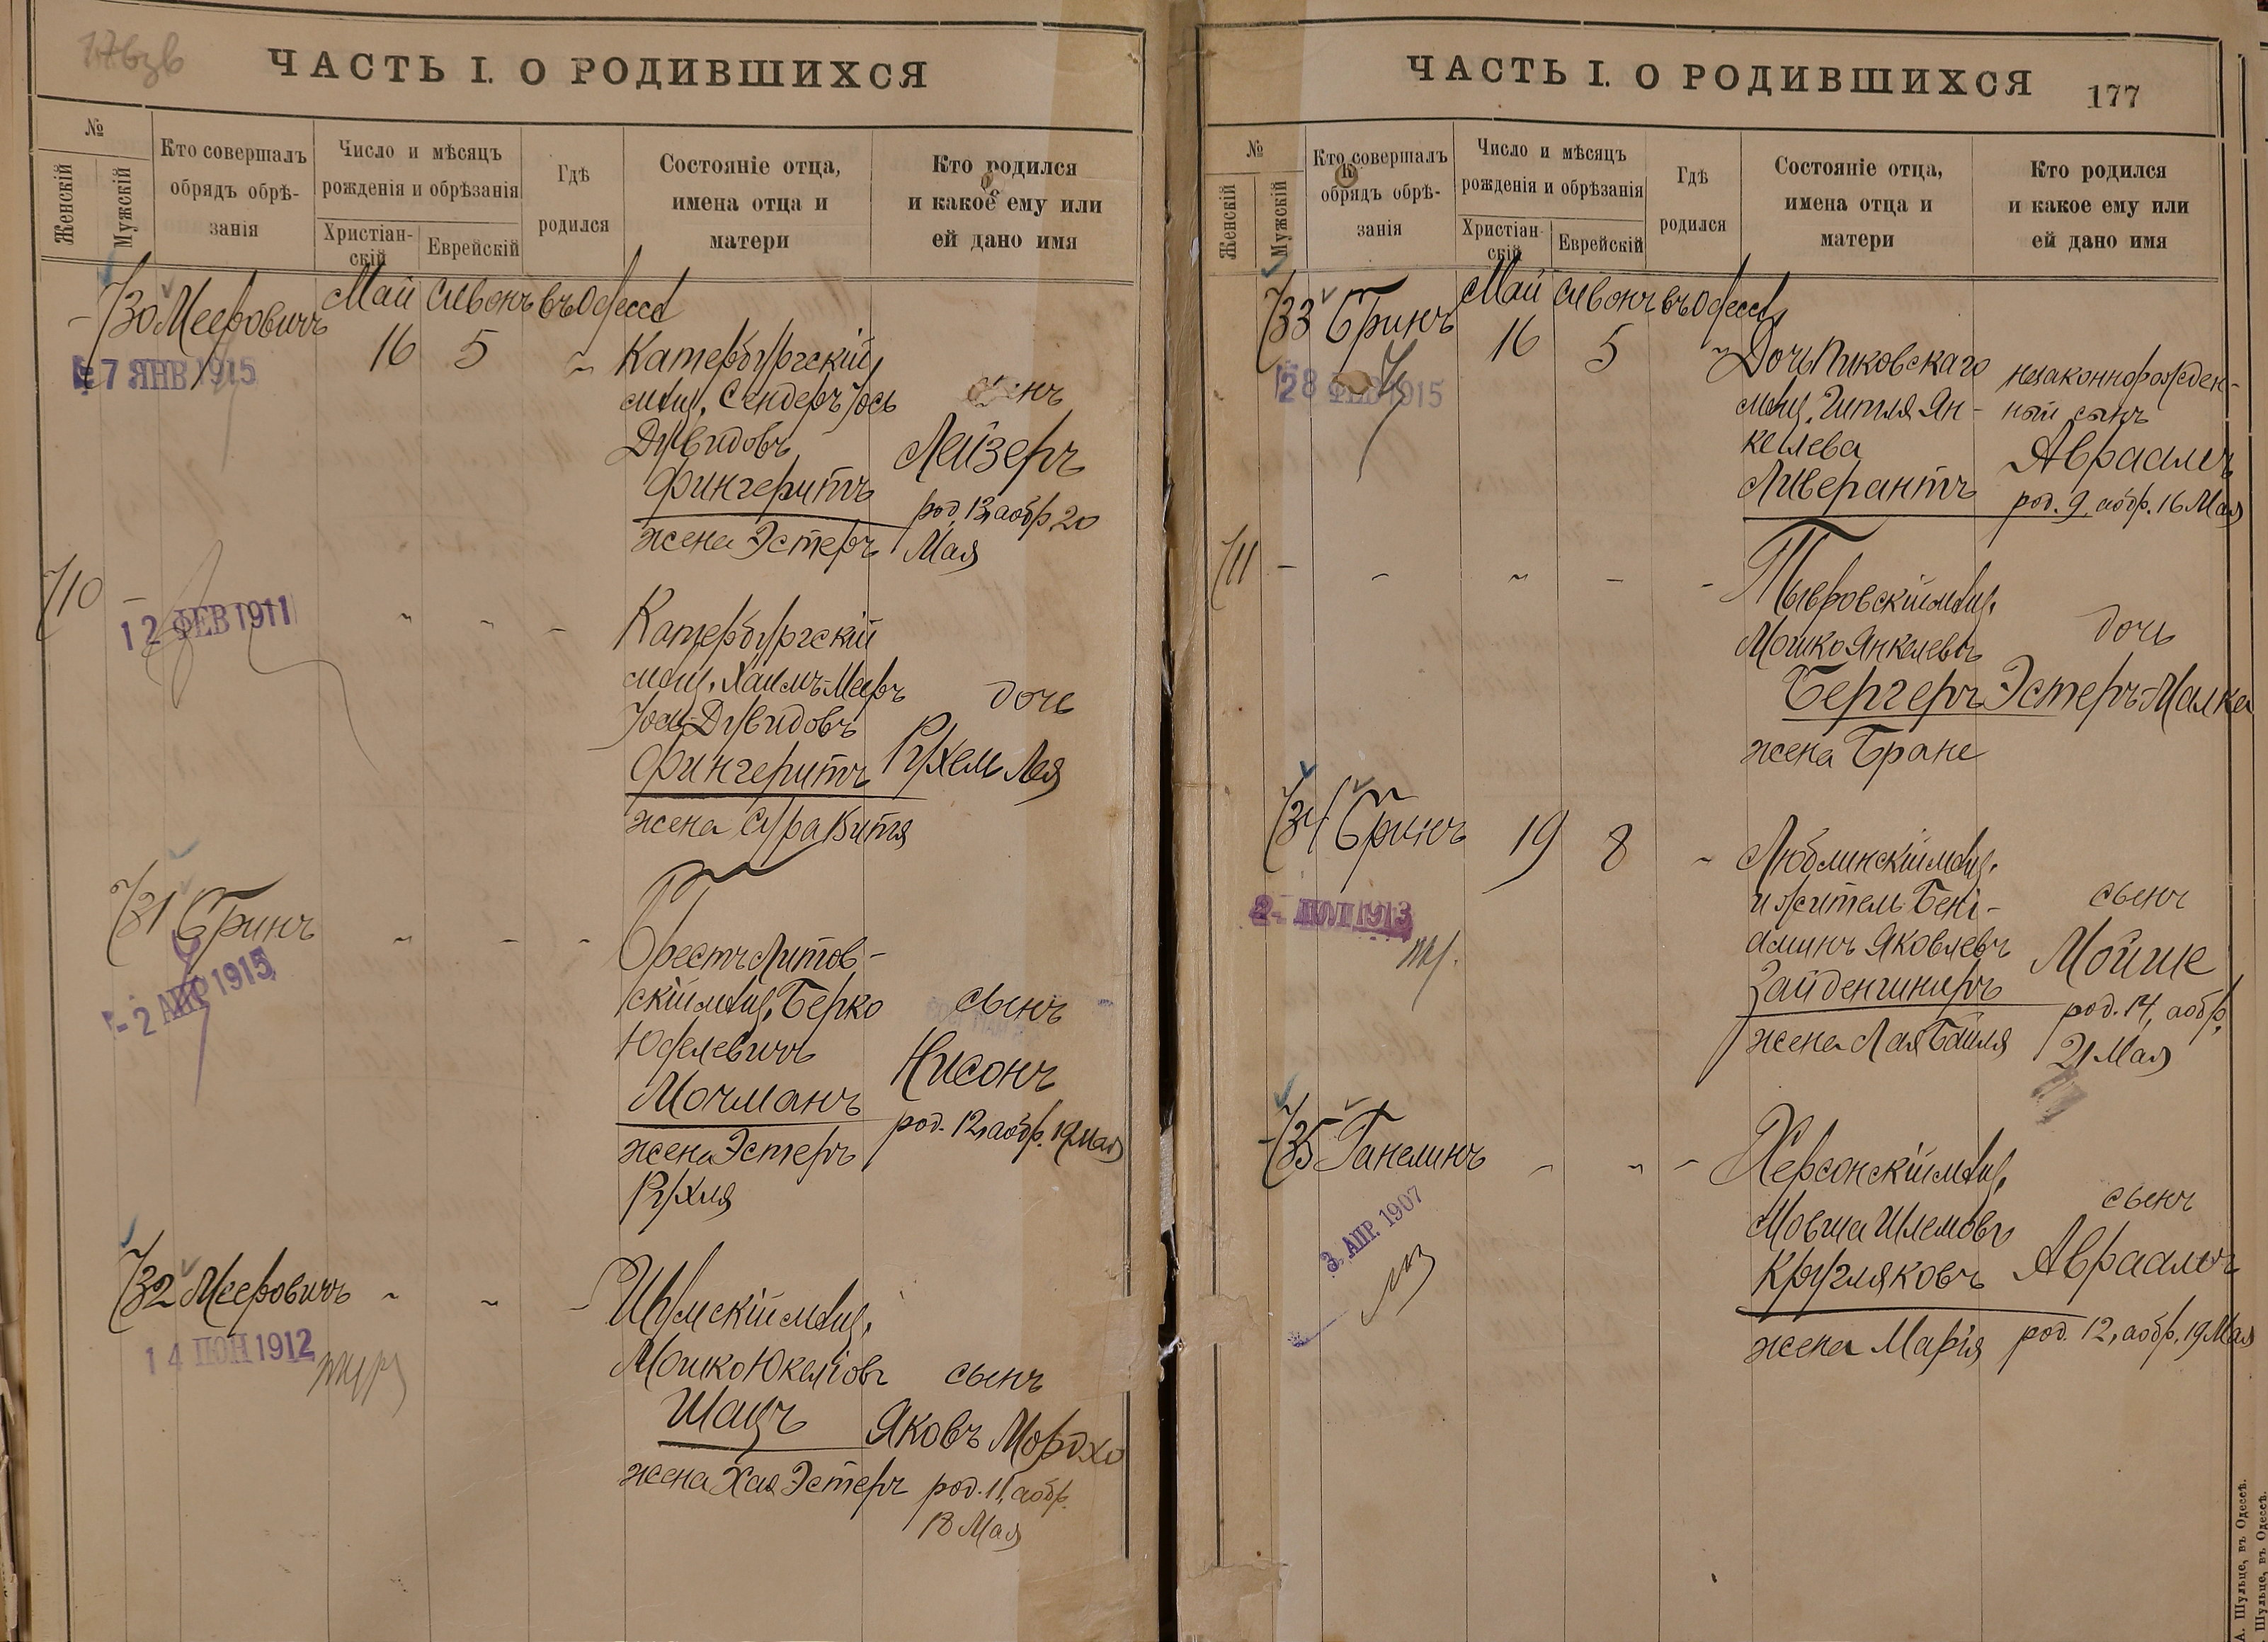 ЧАСТЬ I. О РОДИВШИХСЯ
№
Женскій
Мужскій
Кто совершалъ
обрядъ обрѣ-
занія
Число и мѣсяцъ
рожденія и обрѣзанія
Христіан-
скій
Еврейскій
Гдѣ
родился
Состояніе отца,
имена отца и
матери
Кто родился
и какое ему или
ей дано имя
730 Мееровичъ Май Сивонъ въ Одессѣ
16 5
7 ЯНВ 1915
Катербургскій
мѣщ. Сендеръ Іось
Дувидовъ
Фингеритъ
жена Эстеръ
сынъ
Лейзеръ
род. 13, аобр. 20
Мая
710 -
12 ФЕВ 1911
Катербургскій
мѣщ. Хаимъ-Мееръ
Іось-Дувидовъ
Фингерутъ
жена Сура Витя
дочь
Рухель Лея
731 Гринъ
-2 АПР 1915
Брестъ Литов-
скій мѣщ. Берко
Юделевичъ
Мочманъ
жена Эстеръ
Рухля
сынъ
Нисонъ
род. 12, аобр. 19 Мая
732 Мееровичъ
14 ІЮН 1912
Шумскій мѣщ.
Мошко Юкеліовъ
Шацъ
жена Хая Эстеръ
сынъ
Яковъ Мордхо
род. 11, аобр.
18 Мая
ЧАСТЬ I. О РОДИВШИХСЯ
177
№
Женскій
Мужскій
Кто совершалъ
обрядъ обрѣ-
занія
Число и мѣсяцъ
рожденія и обрѣзанія
Христіан-
скій
Еврейскій
Гдѣ
родился
Состояніе отца,
имена отца и
матери
Кто родился
и какое ему или
ей дано имя
733 Гринъ Май Сивонъ въ Одессѣ
16 5
28 ФЕВ 1915
Дочь Пиковскаго
мѣщ. Гитля Ян-
келева
Ливерантъ
незаконнорожден-
ный сынъ
Авраамъ
род. 9, аобр. 16 Мая
711 -
Тывровскій мѣщ.
Мошко Янкелевъ
Бергеръ
жена Бране
дочь
Эстеръ-Малка
734 Гринъ 19 8
2- ІЮЛ 1913
Люблинскій мѣщ.
и житель Бені-
аминъ Яковлевъ
Зайденшниръ
жена Лая Бейля
сынъ
Мойше
род. 14, аобр.
21 Мая
735 Ганелинъ
3. АПР. 1907
Херсонскій мѣщ.
Мовша Шлемовъ
Кругляковъ
жена Марія
сынъ
Авраамъ
род. 12, аобр. 19 Мая
А. Шульце, въ Одессѣ.
Шульце, въ Одессѣ.